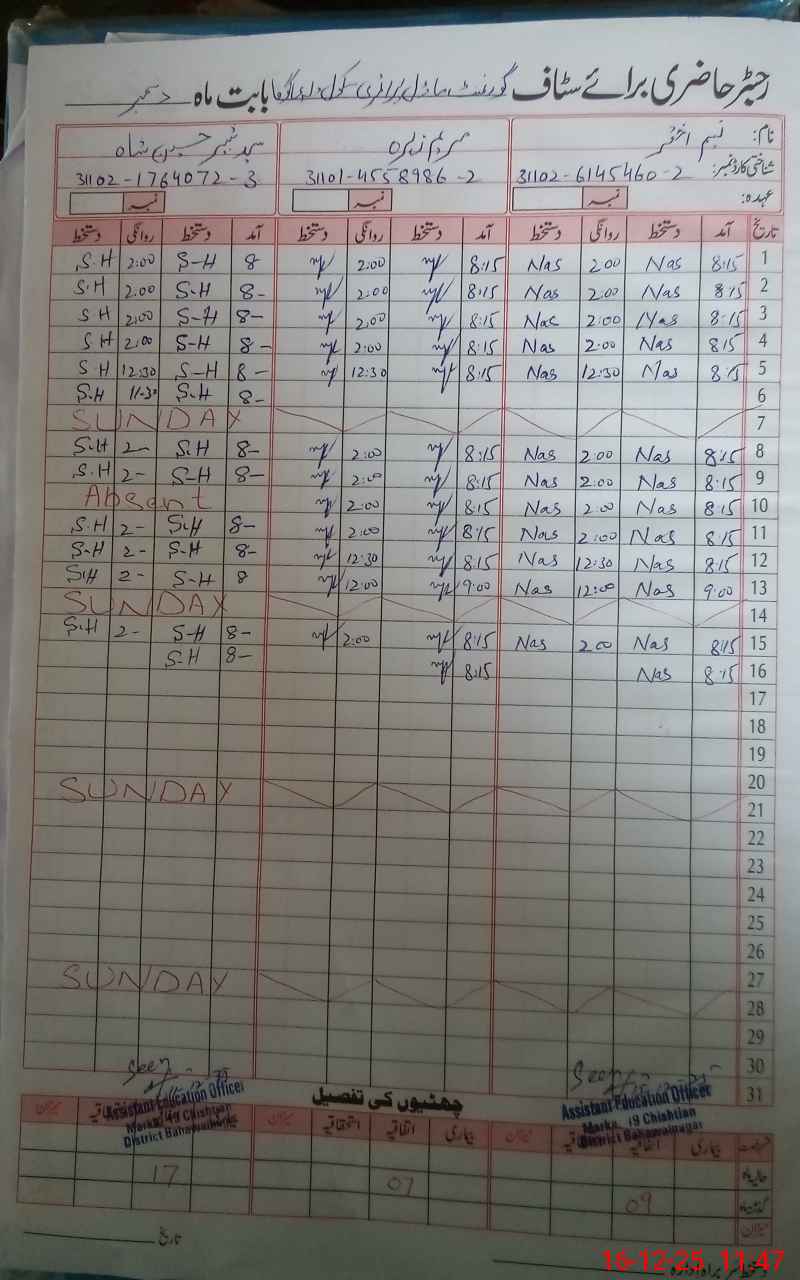 رجسٹر حاضری برائے سٹاف گورنمنٹ ماڈل پرائمری سکول بابت ماہ دسمبر
نام: نسیم اختر مریم زہرہ سید شبیر حسین شاہ
شناختی کارڈ نمبر: 31102-6145460-2 31101-4558986-2 31102-1764072-3
عہدہ: نمبر نمبر نمبر
تاریخ آمد دستخط روانگی دستخط آمد دستخط روانگی دستخط آمد دستخط روانگی دستخط
1 8:15 Nas 2.00 Nas 8:15 2:00 8 S-H 2:00 S.H
2 8:15 Nas 2:00 Nas 8:15 2:00 8- S-H 2.00 S.H
3 8:15 Nas 2:00 Nas 8:15 2:00 8- S-H 2:00 S H
4 8:15 Nas 2:00 Nas 8:15 2:00 8- S-H 2:00 S H
5 8:15 Nas 12:30 Nas 8:15 12:30 8- S-H 12:30 S.H
6 8- S-H 11-30 S.H
7 SUNDAY
8 8:15 Nas 2:00 Nas 8:15 2:00 8- S.H 2- S.H
9 8:15 Nas 2:00 Nas 8:15 2:00 8- S-H 2- S.H
10 8:15 Nas 2:00 Nas 8:15 2:00 Absent
11 8:15 Nas 2:00 Nas 8:15 2:00 8- S.H 2- S.H
12 8:15 Nas 12:30 Nas 8:15 12:30 8- S-H 2- S-H
13 9:00 Nas 12:00 Nas 9:00 12:00 8 S-H 2- S.H
14 SUNDAY
15 8:15 Nas 2:00 Nas 8:15 2:00 8- S-H 2- S.H
16 8:15 Nas 8:15 8- S-H
17
18
19
20
21 SUNDAY
22
23
24
25
26
27
28 SUNDAY
29
30
31
Seen Seen
چھٹیوں کی تفصیل
Assistant Education Officer
Marka. 19 Chishtian
District Bahawalnagar
Assistant Education Officer
Marka. 19 Chishtian
District Bahawalnagar
بیماری اتفاقیہ میزان بیماری اتفاقیہ استحقاقیہ میزان اتفاقیہ میزان
حالیہ ماہ
گذشتہ ماہ 09 07 17
میزان
تاریخ
16-12-25 11:47